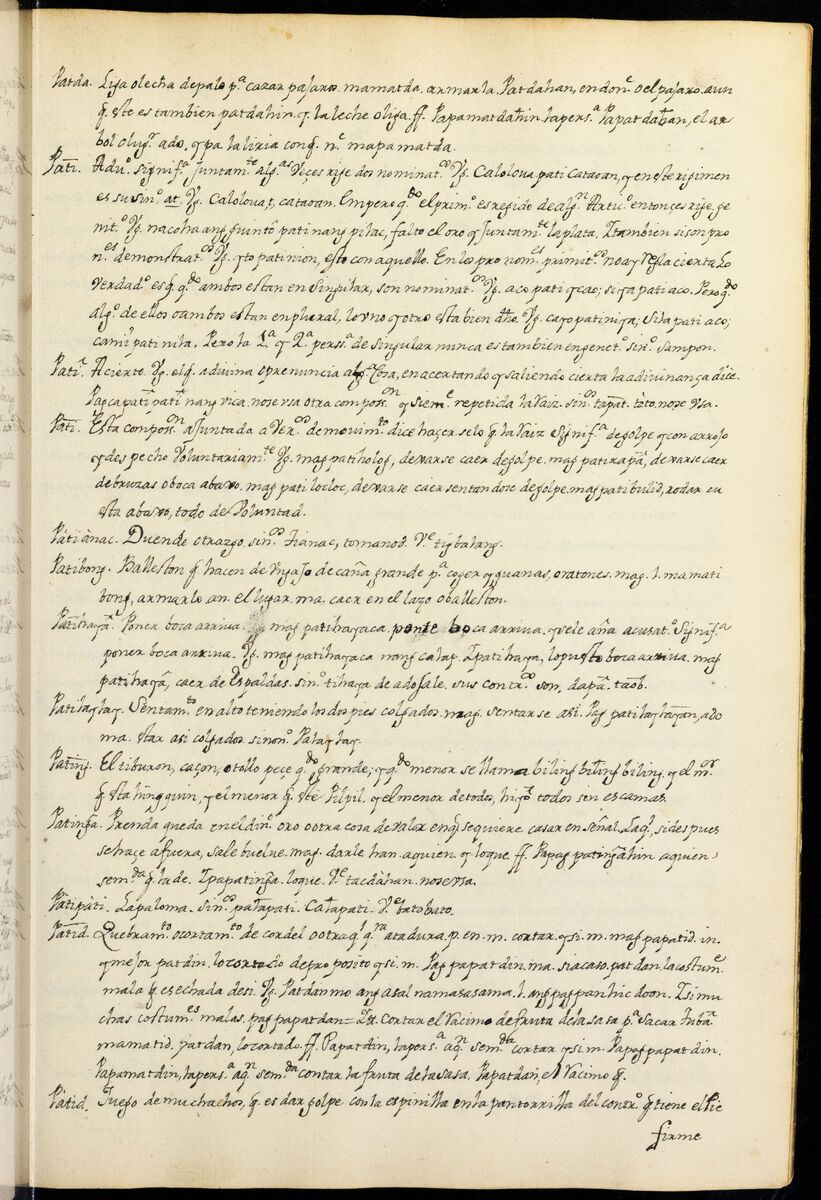 Patda. Liga o lecha de palo p.ª cazar pajaros. mamatda. armarla. Patdahan, en don.e o el pajaro. aun
q. este es tambien patdahin. q. la leche o liga. ff. Papamatdahin. la pers.ª Papatdahan, el ar
bol o lug.r ado. q pa. la liria con q. n.e mapamatda.
Pati. Adu.o signif.ª Juntam.te alg.as Veçes rije dos nominat.os Vg. Calolova pati cataoan, y en este rigimen
es su sin.o at. Vg. Calolova,t, cataoan. Empero q.do el prim.o es regido de alg.n Artic.o entonçes rije, ge
nit.o Vg. nacoha ang guinto patinang pilac, falto el oro y Juntam.te la plata. I tambien si son pro
n.es demonstrat.os Vg. yto patinion, esto con aquello. En los pronom.es primit.os no ay regla cierta Lo
Verdad.o es q. q.do ambos estan en Singular, son nominat.os Vg. aco pati ycao; siya pati aco. Pero q.do
alg.o de ellos o ambos estan en plural, lo vno y otro esta bien dho. Vg. cayo patiniya; Sila pati aco;
cami patinila. Pero la 1.ª y 2.ª perss.ª de singular nunca estambien en genet.o sin.o Sampon.
Pati.ª Acierto. Vg. el q. adiuina o prenuncia alg.ª Cosa, en acertando y saliendo cierta la adiuinança dice.
Pagcapati pati nang vica, no se vsa otra composs.on y Siem.e repetida la Raiz. sin.os tapat. toto. no se Vsa.
Pati. Esta composs.on ajuntada a Ver.os de movim.to dice haçer se lo q. la Raiz Signif.ª de golpe y con arrojo
y despecho Voluntariam.te Vg. magpatiholog, dexarse caer de golpe. magpatirapa, dexarse caer
de bruzas o boca abaxo. magpatilocloc, dexarse caer sentandose de golpe. magpatibulid, rodar cu
esta abaxo, todo de Voluntad.
Patianac. Duende o trazgo. sin.os Tianac, tomanod. V.e tigbalang.
Patibong. Balleston q. hacen de Vn gajo de caña grande p.ª coger yguanas, o ratones. mag. l. mamati
bong, armarlo. an. el lugar. ma. caer en el lazo o balleston.
Patihaga. Poner boca arriva. magpatihagaca. ponte boca arriva. y sele aña acusat.o Signif.ª
poner boca arriva. Vg. magpatihagaca nang calap. Ipatihaga, lo puesto boca arriva. mag
patihaga, caer de Espaldas. sin.o tihaga de ado sale. sus contr.os son, dapa. taob.
Patihaghag. Sentam.to en alto teniendo los dos pies colgados. mag. sentarse asi. Pagpatihaghagan, a lo
ma. star asi colgados. sinon.o Palaghag.
Pating. El tiburon, caçon, o tollo peçe q.do grande; y q.do menor se llama biling biling biling y el m.or
q. sta hinguuin, y el menor q. ste Pilpil. y el menor de todos, higo todos sin escamas.
Patinga. Prenda que da en el din.o oro o otra cosa de valor en q. se quiere casar en señal. La q.l, si despues
se haçe afuera, sale buelue. mag. darle han. a quien. y lo que. ff. Papagpatingahin a quien
sem.da q. la de. Ipapatinga. lo que. V.e tacdahan. no se vsa.
Patipati. La paloma. sin.os palapati. Calapati. V.e batobato.
Patid. Quebram.to o cortam.to de cordel o otra q.l q.ra atadura. p. en. m. cortar. y si. m. magpapatid. in.
y mejor patdin. lo cortado de proposito y si. m. Pagpapatdin. ma. si acaso. patdan. la costum.e
mala q. es echada de si. Vg. Patdan mo ang asal na masasama. l. ang pagpanhic doon. I si mu
chas costum.es malas. pagpapatdan= It. Cortar el Racimo de fruta de la sasa p.ª Sacar tuba.
mamatid. patdan, lo cortado. ff. Papatdin, la pers.ª a q.n sem.da cortar y si. m. Papagpapatdin.
Papamatdin, la pers.ª a q.n sem.da contar la fruta de la sasa. Papatdan, el Racimo q.
Patid. Juego de muchachos, q. es dar golpe con la espinilla en la pantorrilla del contr.o q. tiene el Pie
firme